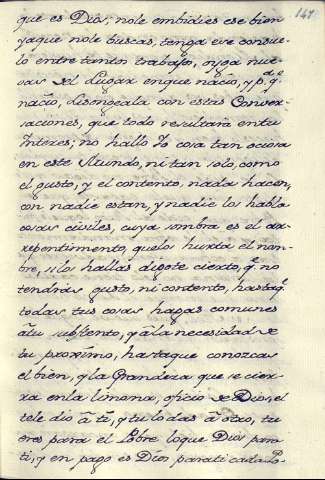 147
que es Dios, no le embidies ese bien
ya que no le buscas, tenga ese consue-
lo entre tantos trabajos, oyga nue-
vas del Lugar en que nacio, y p.a q.e
nacio, disongeala con estas Conver-
saciones, que todo resultara en tu
Interes; no hallo Yo cosa tan ociosa
en este Mundo, ni tan solo, como
el gusto, y el contento, nada hacen,
con nadie estan, y nadie los habla
cosas civiles, cuya sombra es el ar-
repentimiento, que los hurta el nom-
bre, si los hallas digote cierto, q.e no
tendrás gusto, ni contento, hasta q.e
todas tus cosas hagas comunes
á tu subztento, y á la necesidad de
tu proximo, hasta que conozcas
el bien, y la Grandeza que se cier-
ra en la limosna, oficio de Dios, el
te le dio á tí, y tu lo das á otro, tu
eres para el Pobre lo que Dios para
ti, y en pago es Dios para ti cada Po-